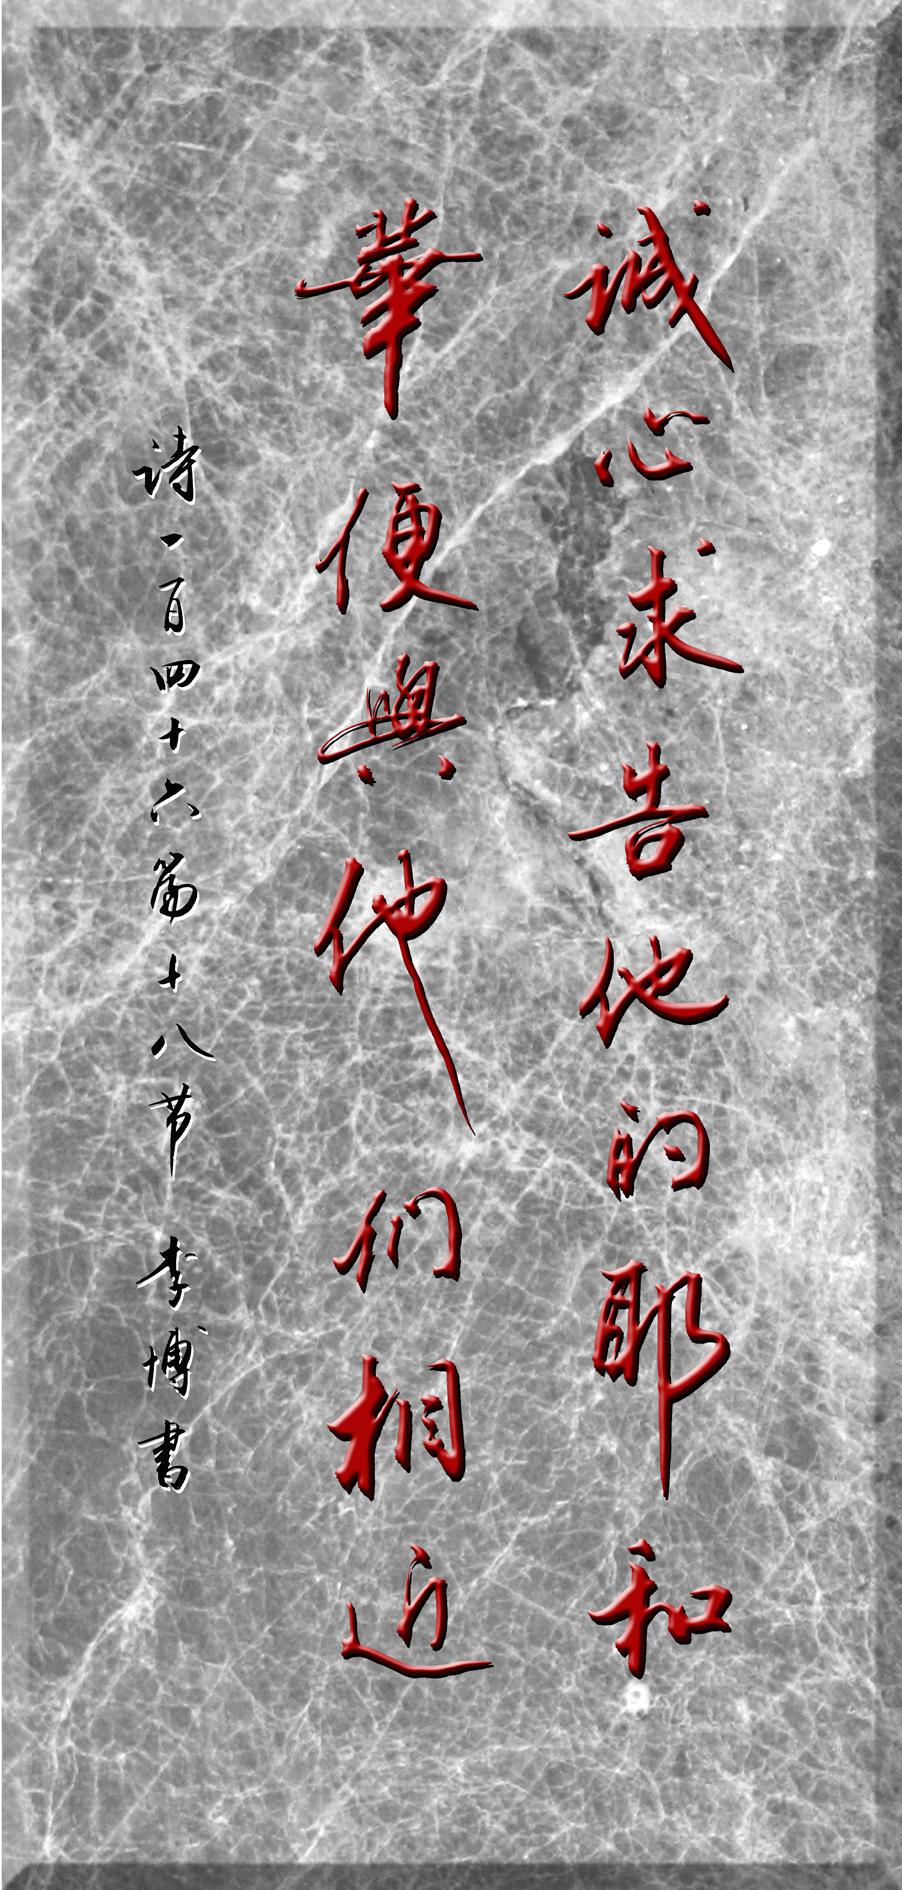 诚心求告他的耶和
華便與他们相近
诗一百四十六篇十八节 李博书